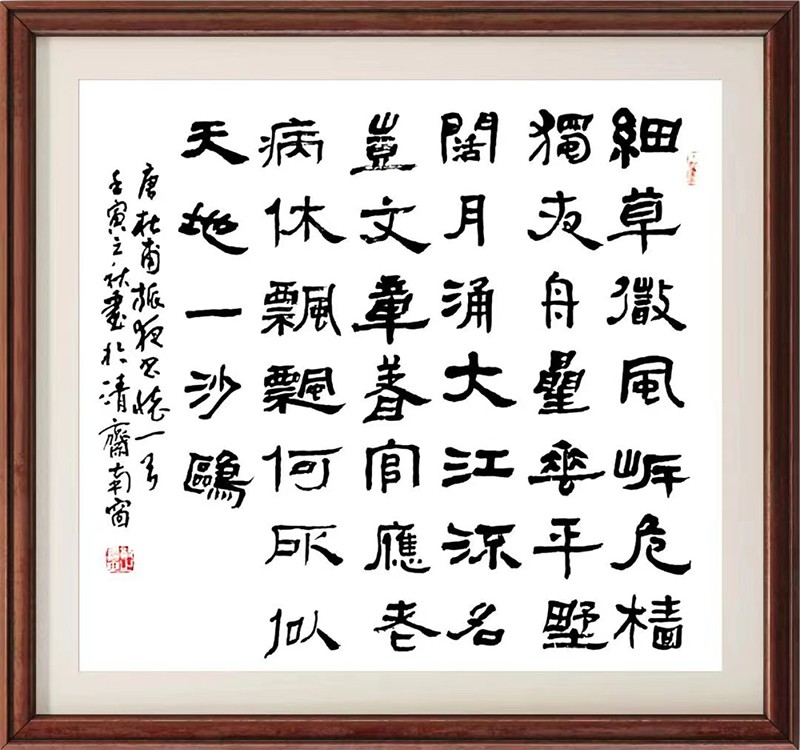 細草微風岸危檣
獨夜舟星垂平墅
闊月涌大江流名
豈文章著官應老
病休飄飄何所似
天地一沙鷗
唐杜甫旅夜書懷一首
壬寅之秋書於清齋南窗